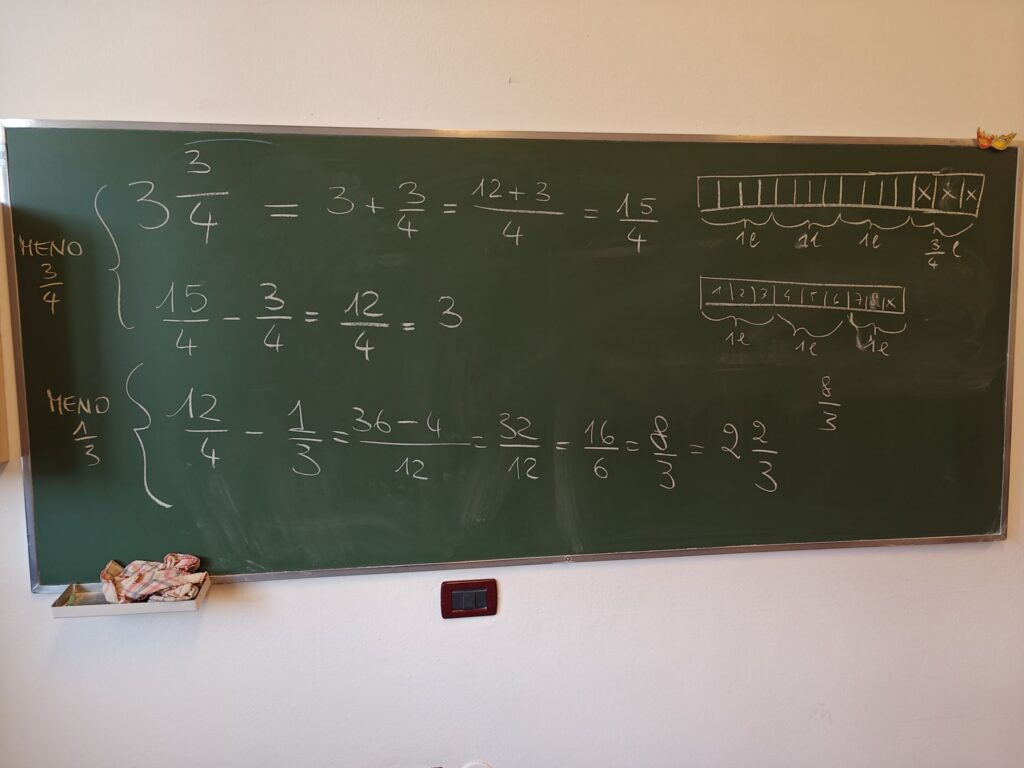 MENO 3/4
3 3/4 = 3 + 3/4 = (12 + 3)/4 = 15/4
15/4 - 3/4 = 12/4 = 3
MENO 1/3
12/4 - 1/3 = (36 - 4)/12 = 32/12 = 16/6 = 8/3 = 2 2/3
X X X
1l 1l 1l 3/4 l
1 2 3 4 5 6 7 8 X
1l 1l 1l
8/3